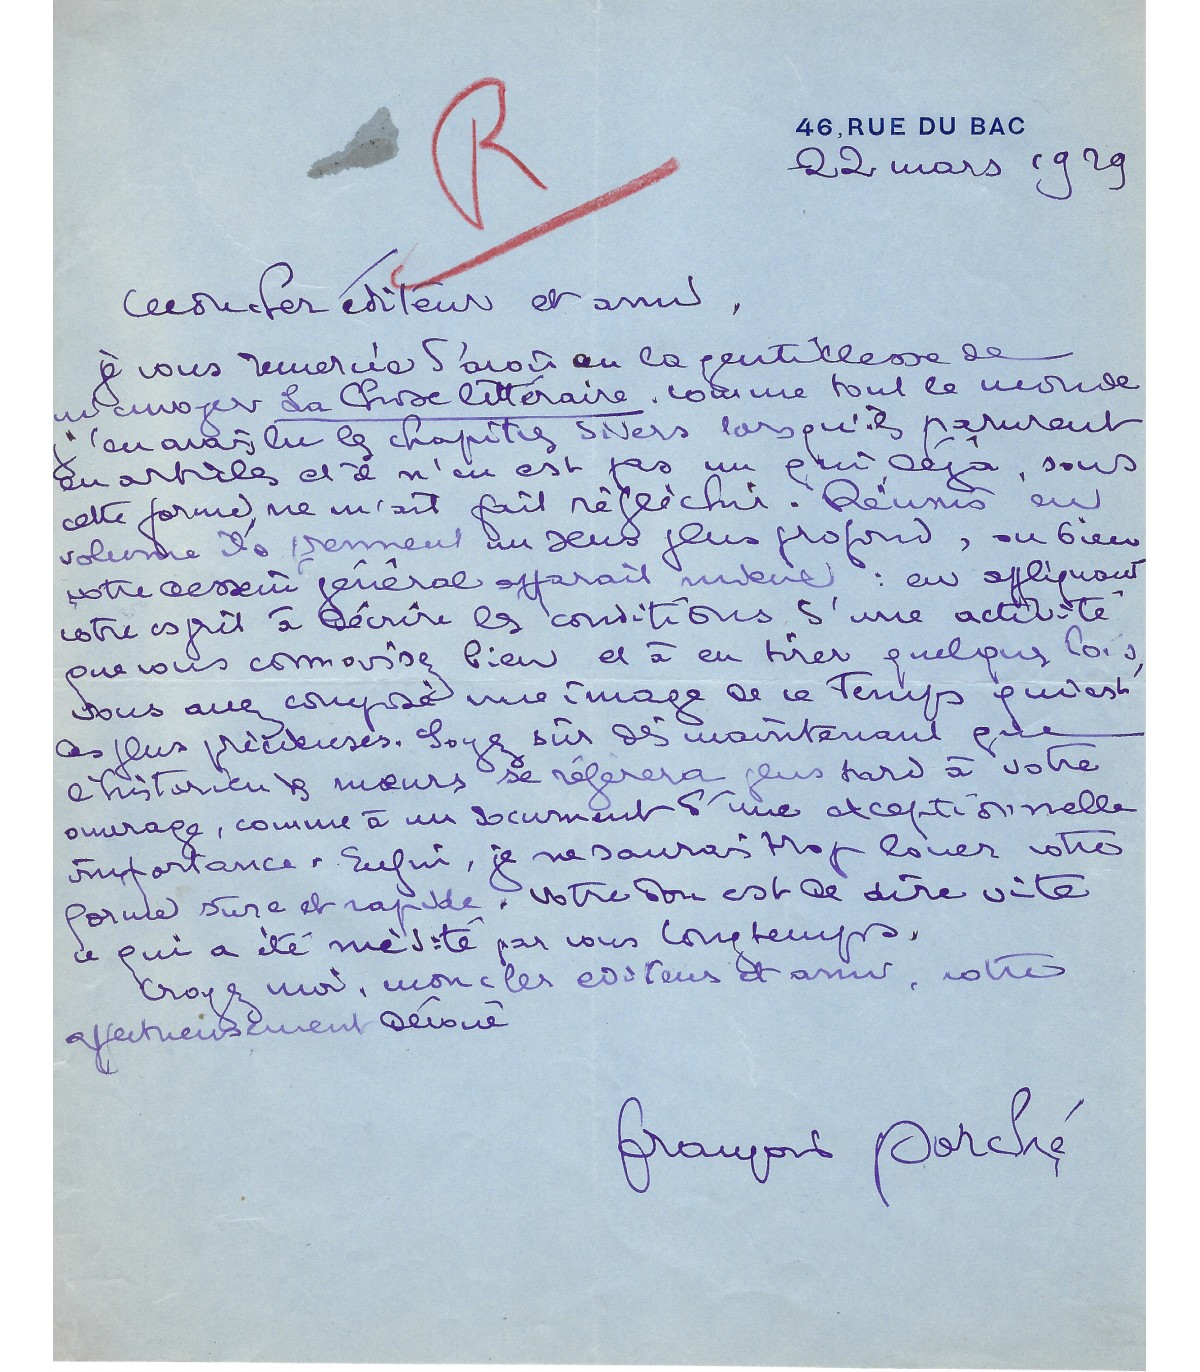 R
46, RUE DU BAC
22 mars 1929
Mon cher éditeur et ami,
je vous remercie d'avoir eu la gentillesse de
m'envoyer La Chose littéraire. Comme tout le monde
j'en avais lu les chapitres divers lorsqu'ils parurent
en articles et il n'en est pas un qui déjà, sous
cette forme, ne m'ait fait réfléchir. Réunis en
volume ils prennent un sens plus profond, ou bien
votre dessein général apparait mieux : en appliquant
votre esprit à décrire les conditions d'une activité
que vous connaissez bien et à en tirer quelques lois,
vous avez composé une image de ce Temps qui est
des plus précieuses. Soyez sûr dès maintenant que
l'historien des mœurs se référera plus tard à votre
ouvrage, comme à un document d'une exceptionnelle
importance. Enfin, je ne saurais trop louer votre
forme sure et rapide. Votre don est de dire vite
ce qui a été médité par vous longtemps.
Croyez moi, mon cher éditeur et ami, votre
affectueusement dévoué
François Porché